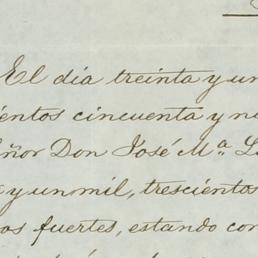 El dia treinta y un
ientos cincuenta y n
eñor Don José Mª L
y un mil, trescientos
os fuertes, estando con